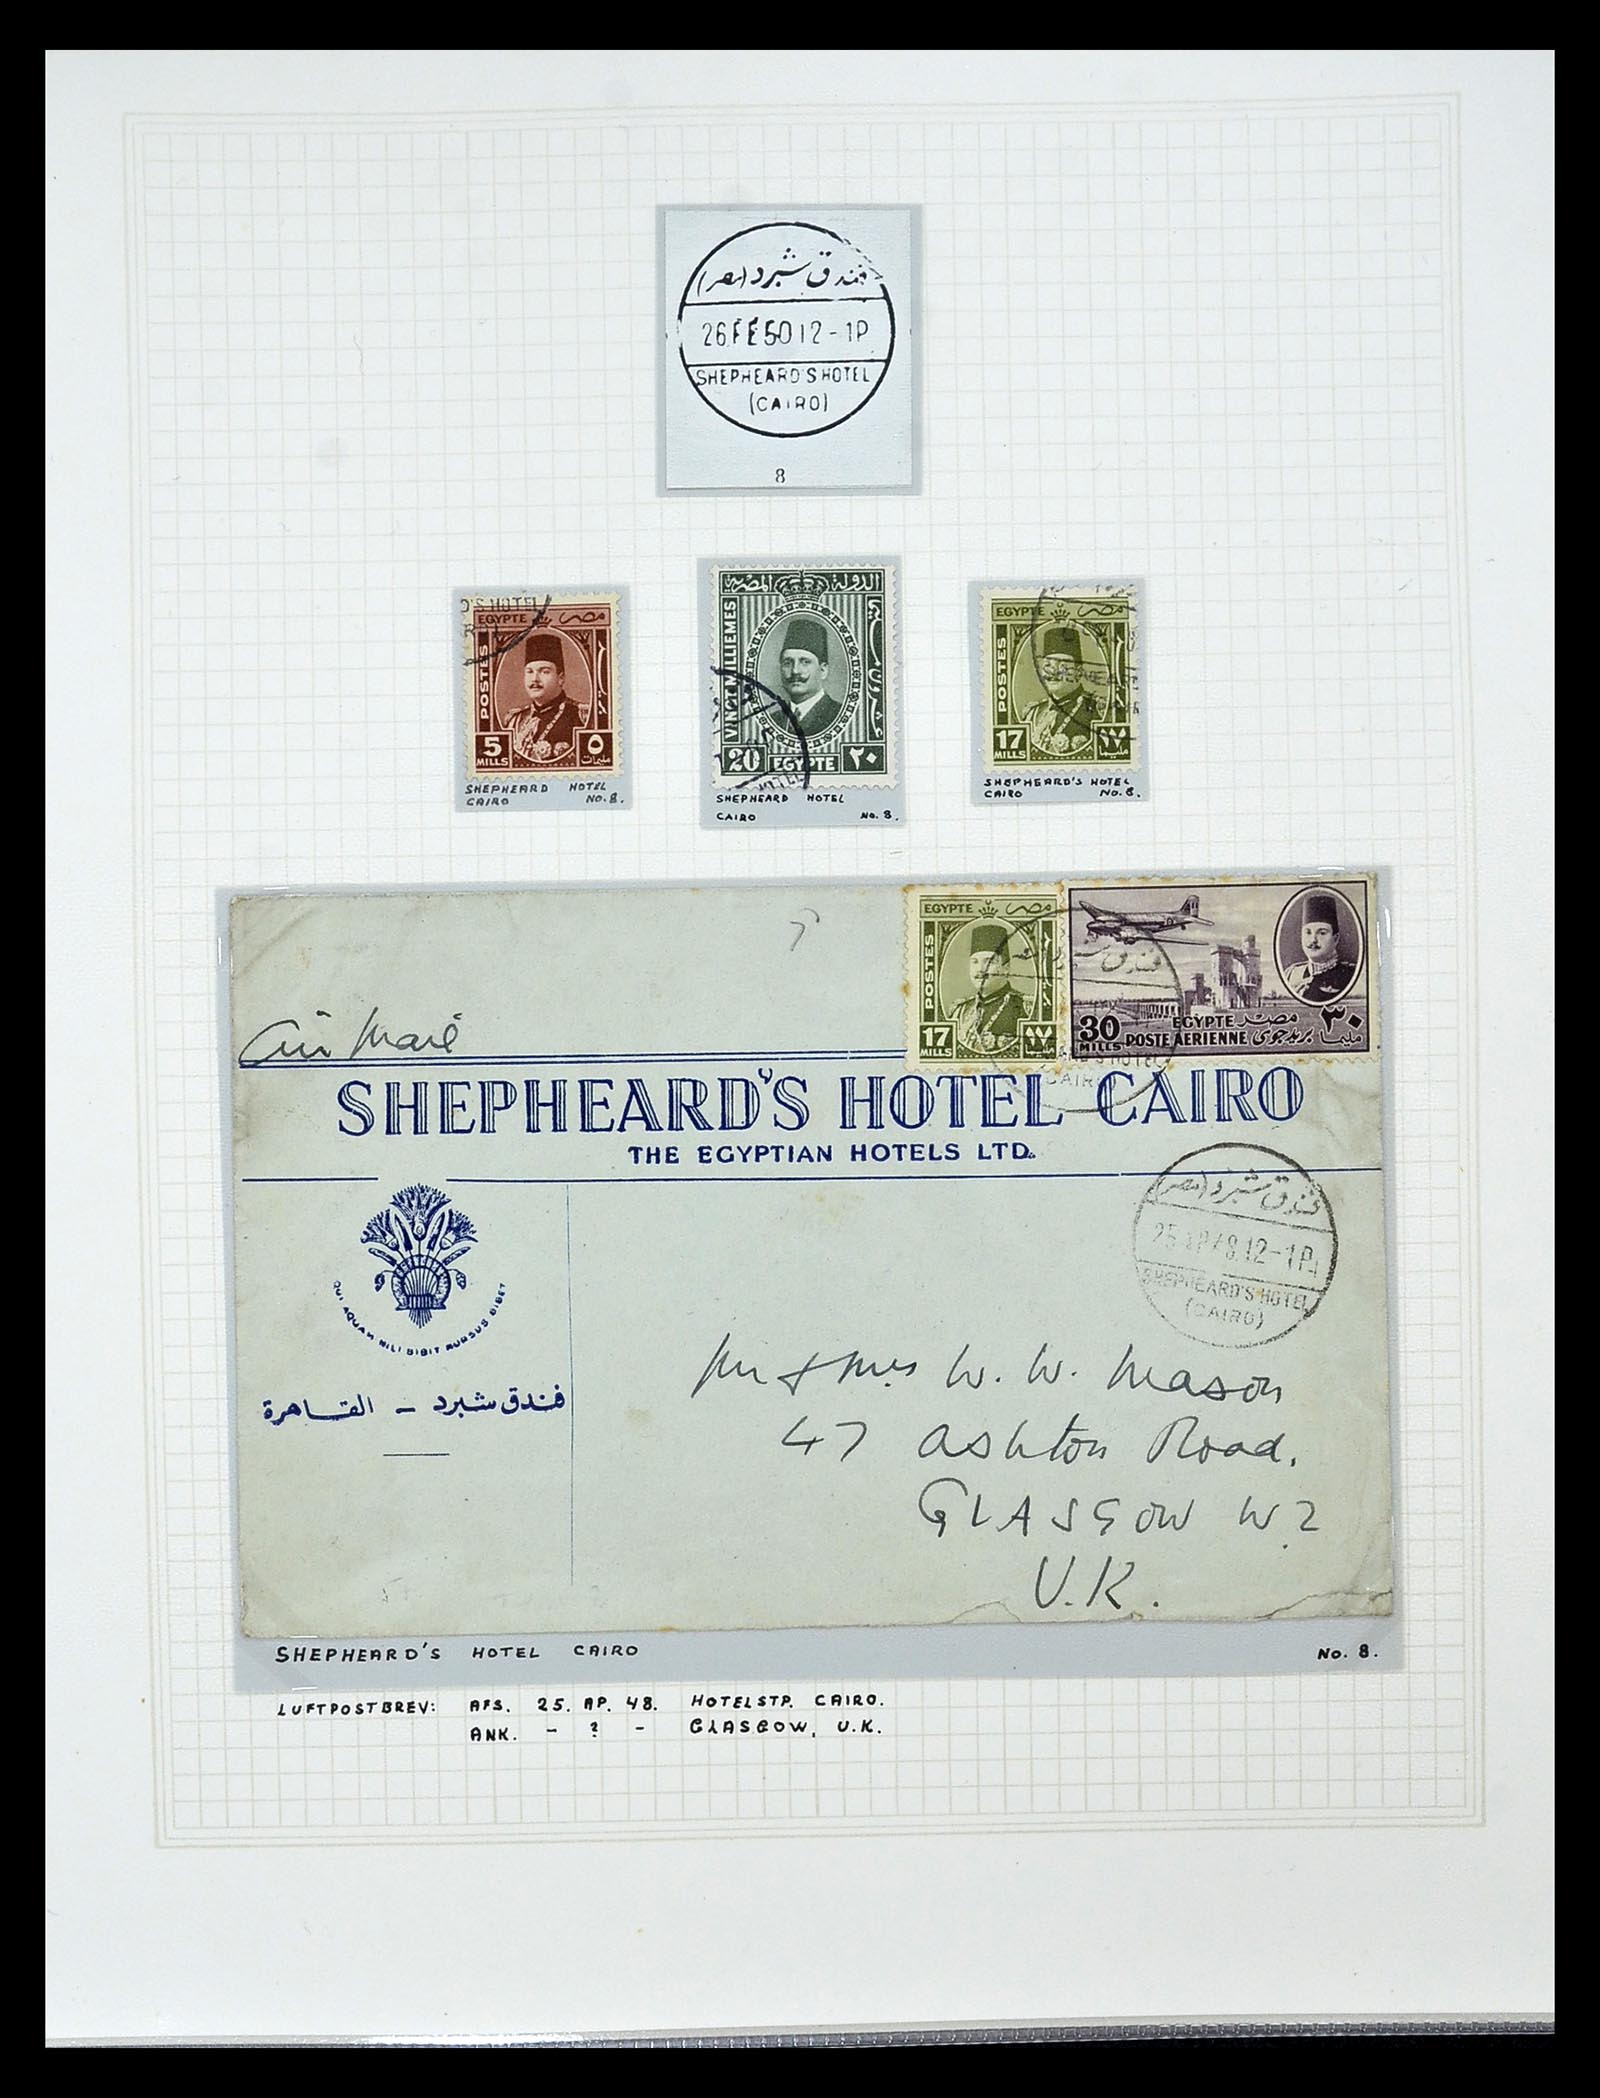 فندق شبرد (مصر)
26 FE 50 12-1P
SHEPHEARD'S HOTEL
(CAIRO)
8
D'S HOTEL
EGYPTE مصر
POSTES
5 ٥
MILLS مليمات
SHEPHEARD HOTEL
CAIRO No. 8.
الدولة المصرية
VINGT MILLIEMES
عشرون مليما
20 EGYPTE ٢٠
SHEPHEARD HOTEL
CAIRO No. 8.
EGYPTE مصر
POSTES
SHEPHEARD'S
17 ١٧
MILLS
SHEPHEARD'S HOTEL
CAIRO No. 8.
EGYPTE مصر
POSTES
17 ١٧
MILLS
فندق شبرد
EGYPTE مصر
30 MILLS POSTE AERIENNE بريد جوى ٣٠ مليما
RD'S HOTEL
CAIRO
Air Mail
SHEPHEARD'S HOTEL CAIRO
THE EGYPTIAN HOTELS LTD.
فندق شبرد (مصر)
25 AP 48 12-1P
SHEPHEARD'S HOTEL
(CAIRO)
QUI AQUAM NILI BIBIT RURSUS BIBET
فندق شبرد - القاهرة
Mr & Mrs W. W. Mason
47 Ashton Road.
GLASGOW W2
U.K.
SHEPHEARD'S HOTEL CAIRO No. 8.
LUFTPOSTBREV: AFS. 25. AP. 48. HOTELSTP. CAIRO.
ANK. - ? - GLASGOW, U.K.